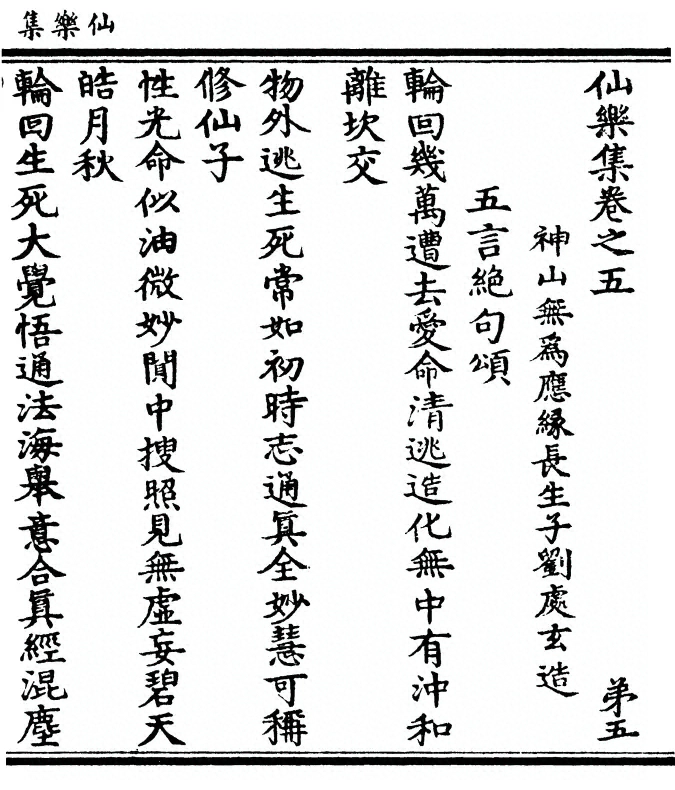 仙樂集
仙樂集卷之五
第五
神山無為應緣長生子劉處玄造
五言絕句頌
輪回幾萬遭去愛命清逃造化無中有沖和
離坎交
物外逃生死常如初時志通真全妙慧可稱
修仙子
性光命似油微妙閒中搜照見無虛妄碧天
皓月秋
輪回生死大覺悟通法海舉意合真經混塵